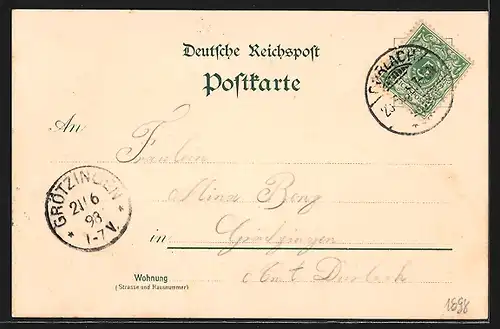 Deutsche Reichspost
Postkarte
DURLACH
5
An
Fräulein
Mina Benz
in Grötzingen
Amt Durlach
GRÖTZINGEN
6
98
* 1-7V. *
Wohnung
(Strasse und Hausnummer)
1898